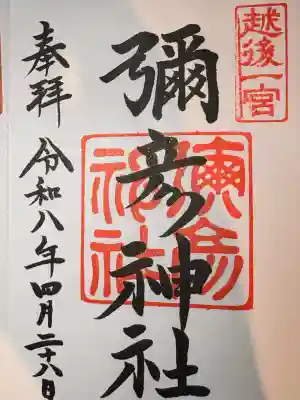 越後一宮
彌彦神社
彌彦神社
奉拝 令和八年四月二十八日